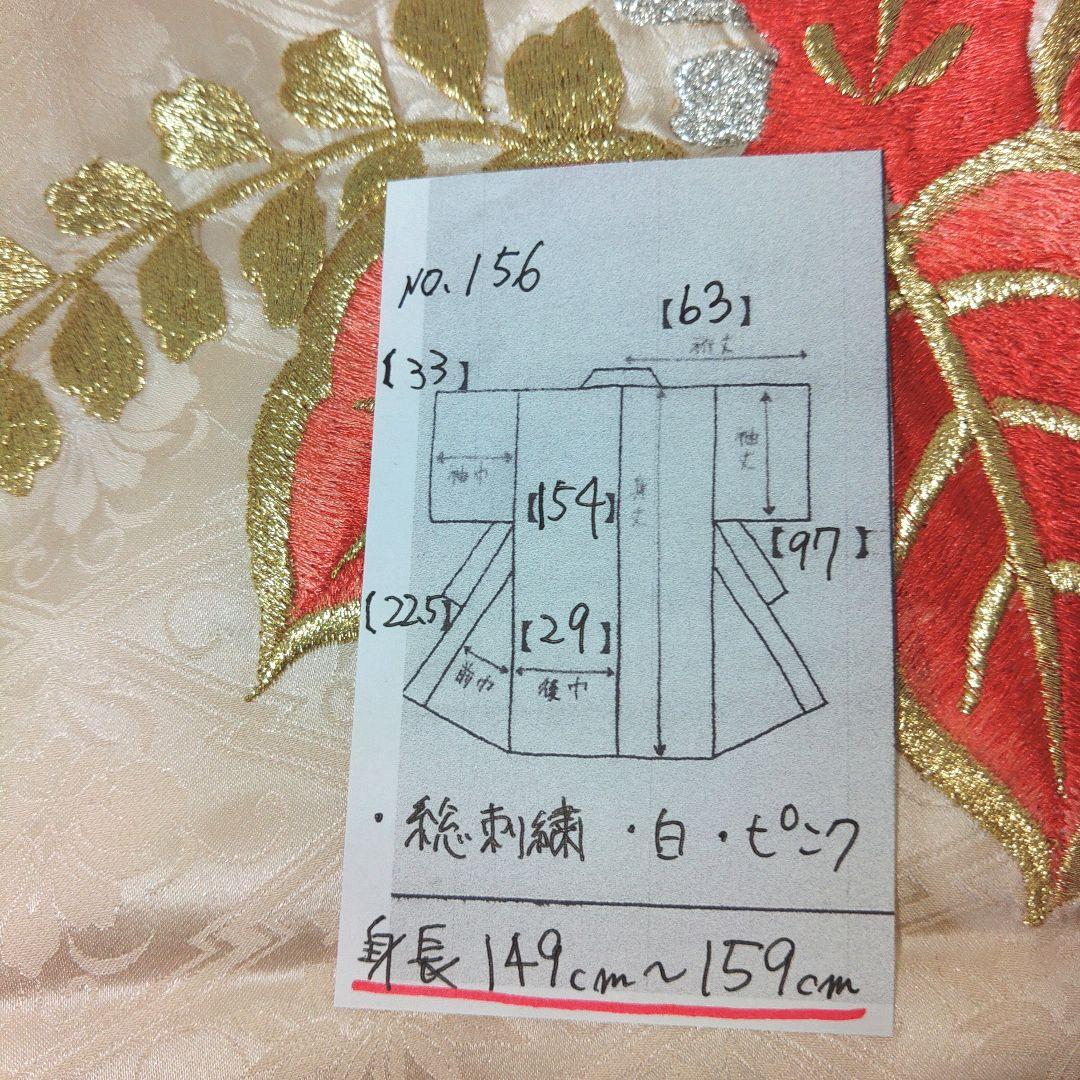 NO.156
【63】
裄丈
【33】
袖巾
袖丈
身丈
【154】
【97】
【22.5】
【29】
前巾
後巾
・総刺繍 ・白・ピンク
身長 149cm~159cm